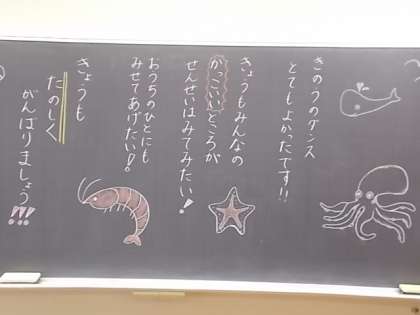 きのうのダンス
とてもよかったです!!
きょうもみんなの
かっこいいところが
せんせいはみてみたい!
おうちのひとにも
みせてあげたい!!
きょうも
たのしく
がんばりましょう!!!